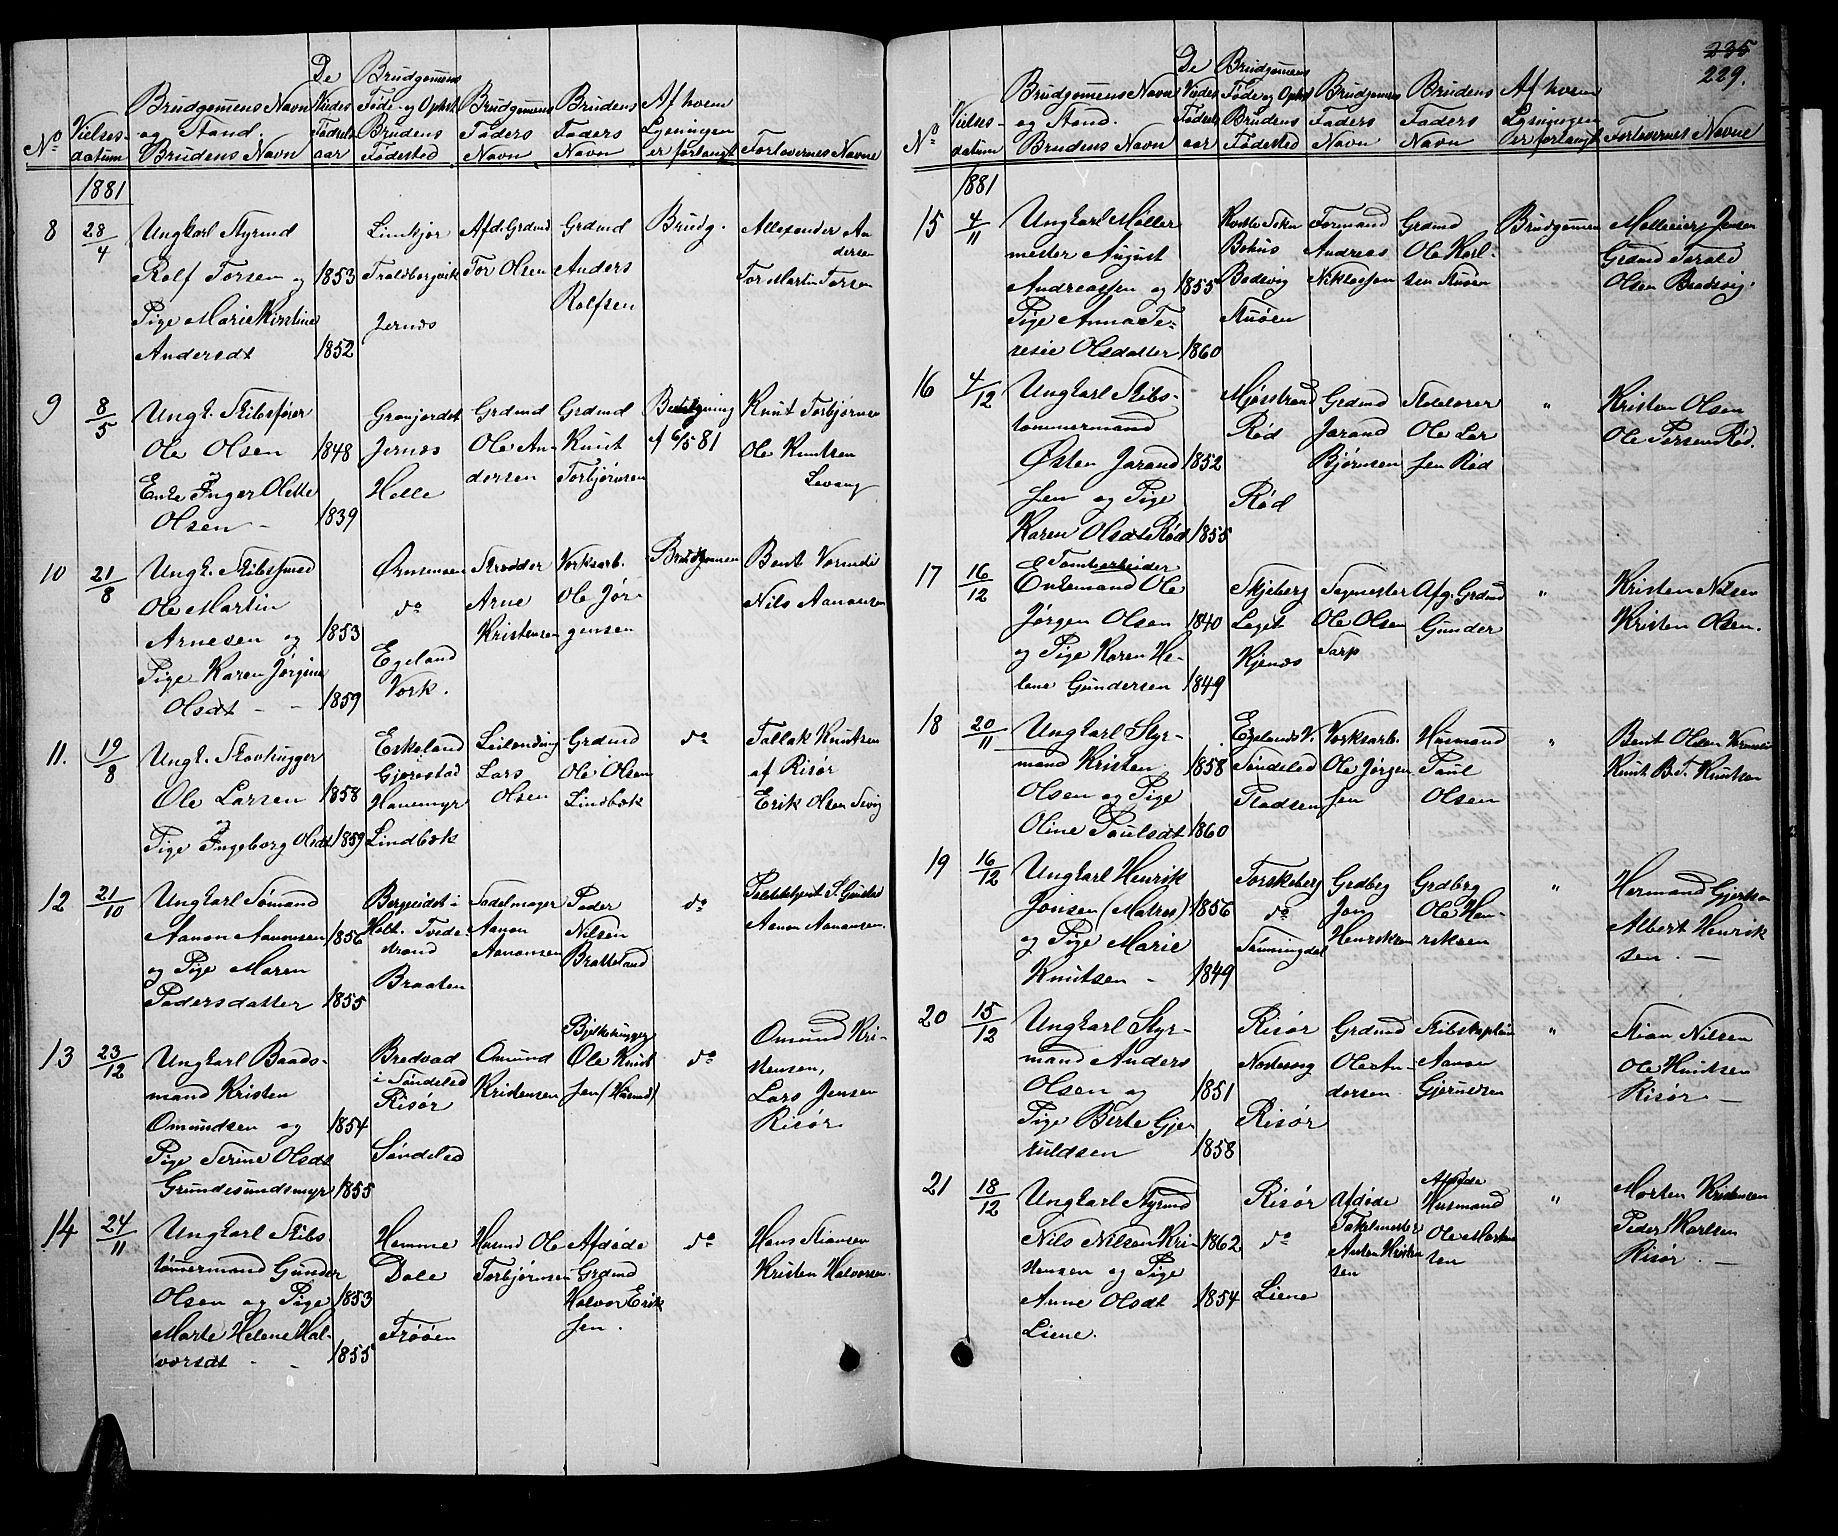 235
229.
No
Vielses-
datum
Brudgomens Navn
og Stand.
Brudens Navn
De
Viedes
Fødsels
aar
Brudgomens
Føde- og Opholst
Brudens
Fødested
Brudgomens
Faders
Navn
Brudens
Faders
Navn
Af hvem
Lysningen
er forlangt
Forlovernes Navne
1881
8
28/4
Ungkarl Styrmd
Rolf Torsen og
Pige Marie Kirstine
Andersdt
1853
1852
Limkjær
Traldborgvik
Jernæs
Afd. Grdmd
Tor Olsen
Grdmd
Anders
Rolfsen
Brudg.
Allexander An
dersen
Tor Martin Torsen
9
8/5
Ungk. Skibsfører
Ole Olsen
Enke Inger Olette
Olsen -
1848
1839
Granjordet
Jernæs
Holle
Grdmd
Ole An
dersen
Grdmd
Knut
Torbjørnsen
6/5 81
Knut Torbjørnsen
Ole Knutsen
Levang
10
21/8
Ungk. Skibssmed
Ole Martin
Arnesen og
Pige Karen Jørgine
Olsdt - -
1853
1859
do
Egeland
Verk.
Arne
Kristensen
Verksarb.
Ole Jør-
gensen
Brudgomen
Bent Vormeli
Nils Aanonsen
11.
19/8
Ungk. Skovhugger
Ole Larsen
Pige Ingeborg Olsdt
1858
1859
Eskeland
Gjerestad
Hanemyr
Lindbæk
Leilending
Lars
Olsen
Grdmd
Ole Olsen
Lindbæk
do
Tallak Knutsen
af Risør
Erik Olsen Sevig
12
21/10
Ungkarl Sømand
Aanon Aanonsen
og Pige Maren
Pedersdatter
1856
1855
Holt. Tvede-
strand
Braaten
Sadelmager
Aanon
Aanonsen
Peder
Nilsen
Bratteland
do
Aanon Aanonsen.
13
23/12
Ungkarl Baads-
mand Kristen
Omundsen og
Pige Serine Olsdt
Grundesundsmyr
1854
1855
Bredvad
i Søndeled
Risør
Søndeled
Omund
Kristensen
Bjelkehugger
Ole Knut
sen (Husmd)
do
Omund Kri-
stensen,
Lars Jensen
Risør
14
24/11
Ungkarl Skibs
tømmermand Gunder
Olsen og Pige
Marte Helene Hal-
vorsdt - -
1853
1855
Hemme
Dale
Frøøen
Husmd Ole
Torbjørnsen
Afdøde
Grdmd
Halvor Erik
sen.
do
Hans Stiansen
Kristen Halvorsen.
No
Vielses-
datum
Brudgomens Navn
og Stand.
Brudens Navn
De
Viedes
Fødsels
aar
Brudgomens
Føde og Ophst
Brudens
Fødested
Brudgomens
Faders
Navn
Brudens
Faders
Navn
Af hvem
Lysningen
er forlangt
Forlovernes Navne
1881
15
4/11
Ungkarl Møller
mester August
Andreassen og
Pige Anna Te-
resie Olsdatter
1855
1860
Bohus
Bødsvig
Stuøen
Formand
Andreas
Niklassen
Grdmd
Ole Karl-
sen Stuøen
Brudgomen
Mølleeier Jensen
Grdmd Tarald
Olsen Bredsvig.
16
4/12
Ungkarl Skibs-
tømmermand
Østen Jarand
sen og Pige
Karen Olsdt Rød
1852
1855
Mjøsstrand
Rød
Rød
Grdmd
Jarand
Bjørnsen
Ole Lar
sen Rød
"
Kristen Olsen
Ole Persen Rød.
17
16/12
Tomtearbeider
Enkemand Ole
Jørgen Olsen
og Pige Karen He-
lene Gundersen
1840
1849
Skjeberg
Laget
Kjenæs
Sagmester
Ole Olsen
Sarp
Afg. Grdmd
Gunder
"
Kristen Nilsen
Kristen Olsen.
18
20/11
Ungkarl Styr-
mand Kristen
Olsen og Pige
Oline Poulsdt
1858
1860
Egelands V.
Søndeled
Pladsen
Verksarb.
Ole Jørgen
sen
Husmand
Paul
Olsen
"
Bent Olsen Vormeli
Knut B. T. Knutsen
19
16/12
Ungkarl Henrik
Jonsen (Matros)
og Pige Marie
Knutsen -
1856
1849
Torskeberg
do
Sønningdal
Grdbrg
Jon
Henriksen
Grdbrg
Ole Hen-
riksen
"
Hermand Gjertsen
Albert Henrik
sen. -
20
15/12
Ungkarl Styr-
mand Anders
Olsen og
Pige Berte Gje-
ruldsen
1851
1858
Risør
Risør
Grdmd
Ole An-
dersen
Skibskaptein
Aanon
"
Stian Nilsen
Ole Knutsen
Risør -
21
18/12
Ungkarl Styrmd
Nils Nilsen Kri-
stensen og Pige
Anne Olsdt
Liene.
1862
1854
Risør
do
Liene
Afdøde
Takelmester
Anten Kristen
sen
Afdøde
Husmand
Ole Morten
sen
"
Morten Kristensen
Peder Karlsen
Risør. -